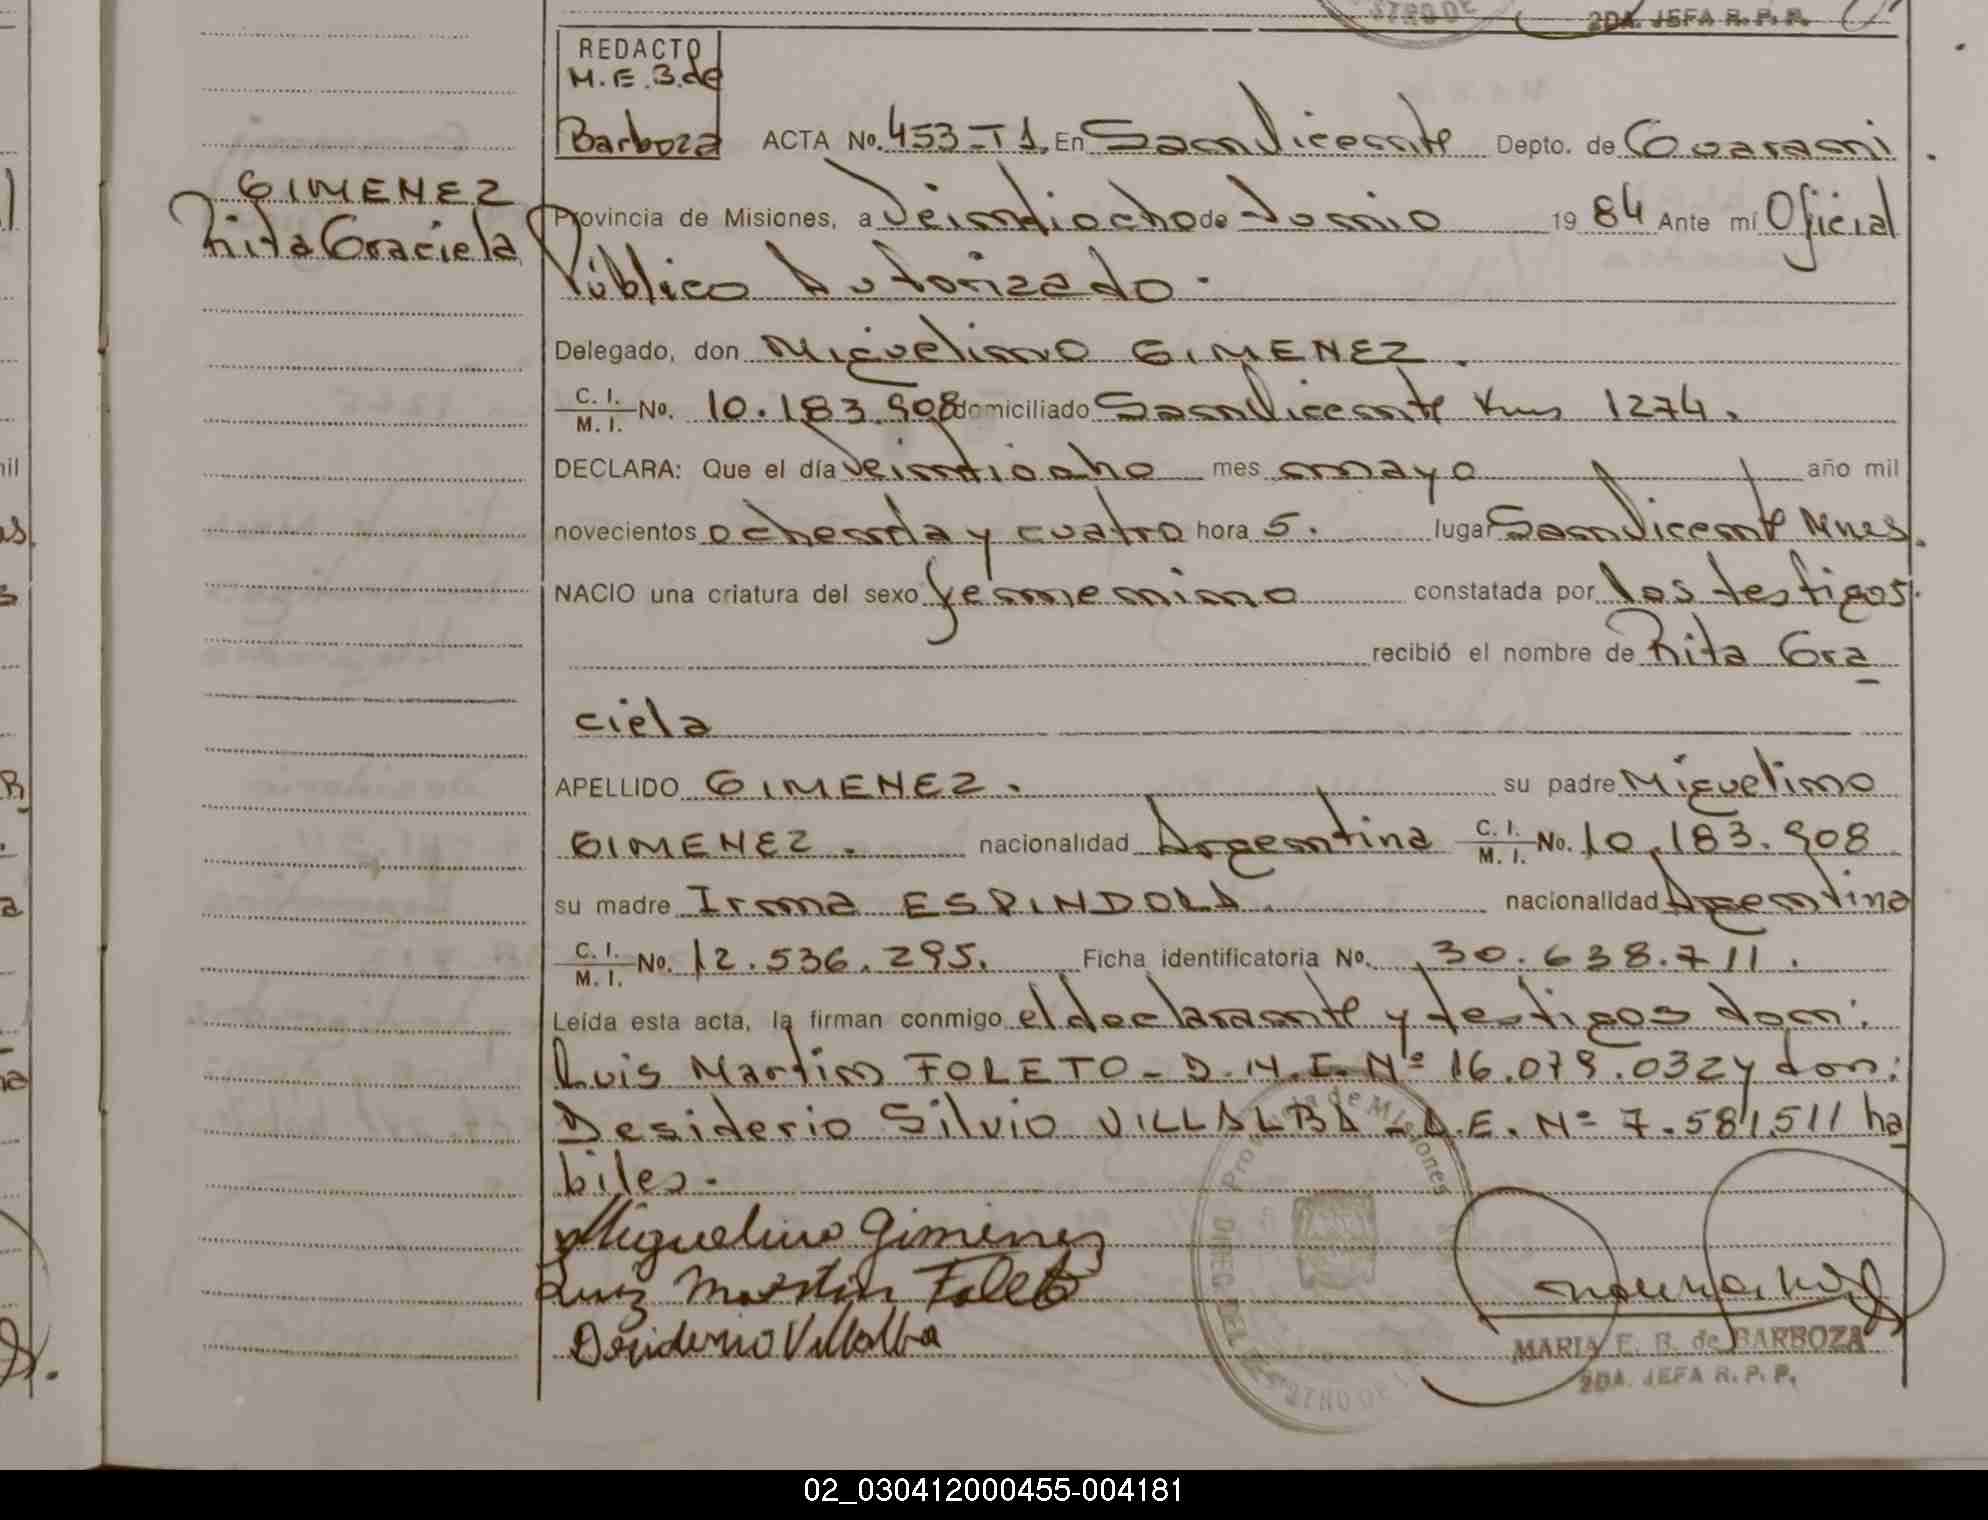 STRO DE
2DA. JEFA R. P. P.
REDACTO
M.E.B.de
Barboza
ACTA No. 453-T1. En San Vicente Depto. de Guarani
GIMENEZ
Rita Graciela
Provincia de Misiones, a Veintiocho de Junio 19 84 Ante mí Oficial
Público Autorizado.
Delegado, don Miguelino GIMENEZ.
C. I. / M. I. No. 10.183.908 domiciliado San Vicente Km 1274.
DECLARA: Que el día Veintiocho mes mayo año mil
novecientos ochenta y cuatro hora 5. lugar San Vicente Mnes.
NACIO una criatura del sexo femenino constatada por los testigos.
recibió el nombre de Rita Gra
ciela
APELLIDO GIMENEZ. su padre Miguelino
GIMENEZ. nacionalidad Argentina C. I. / M. I. No. 10.183.908
su madre Irma ESPINDOLA. nacionalidad Argentina
C. I. / M. I. No. 12.536.295. Ficha identificatoria No. 30.638.711.
Leída esta acta, la firman conmigo el declarante y testigos don:
Luis Martin FOLETO - D.N.I. Nº 16.079.032 y don:
Desiderio Silvio VILLALBA - L.E. Nº 7.581.511 ha
biles.
Miguelino Gimenez
Luiz Martin Foleto
Desiderio Villalba
Provincia de Misiones
MARIA E. B. de BARBOZA
2DA. JEFA R. P. P.
02_030412000455-004181